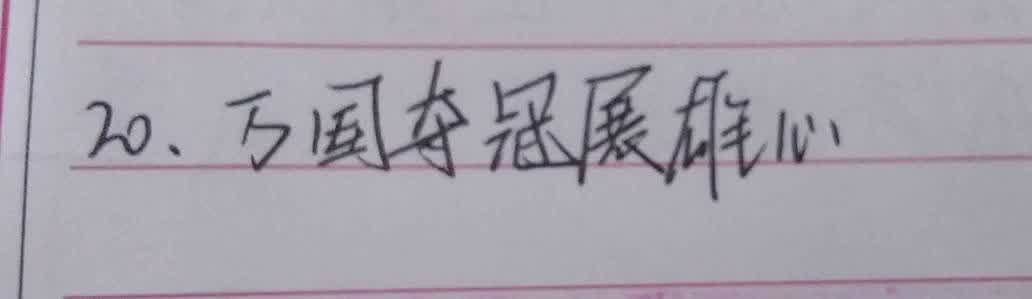 20、万国夺冠展雄心